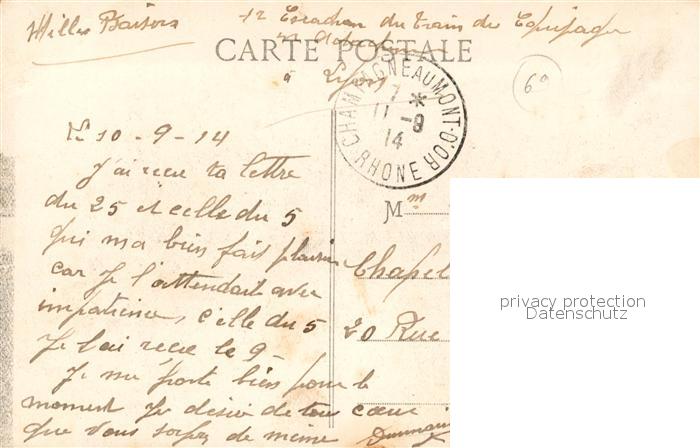 Milles Baisers
14 Escadron du train des Equipages
CARTE POSTALE
à Lyon
CHAMPAGNE AU MONT-D'OR
7 *
11 -9
14
RHONE
69
le 10 - 9 - 14
J'ai recu ta lettre
du 25 et celle du 5
qui ma bien fait plaisir
car Je l'attendait avec
impatience, celle du 5
Je l'ai recue le 9 -
Je me porte bien pour le
moment Je désire de tout coeur
que vous soyez de même
Mm
Chapel
20 Rue
privacy protection
Datenschutz